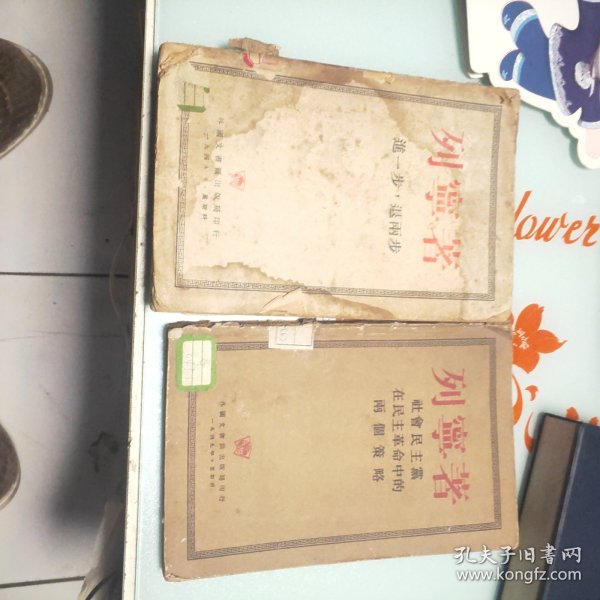 列寧著
進一步,退兩步
外國文書籍出版局印行
一九四八 莫斯科
列寧著
社會民主黨
在民主革命中的
兩個策略
外國文書籍出版局印行
一九四九年·莫斯科
lower
孔夫子旧書网
www.kongfz.com